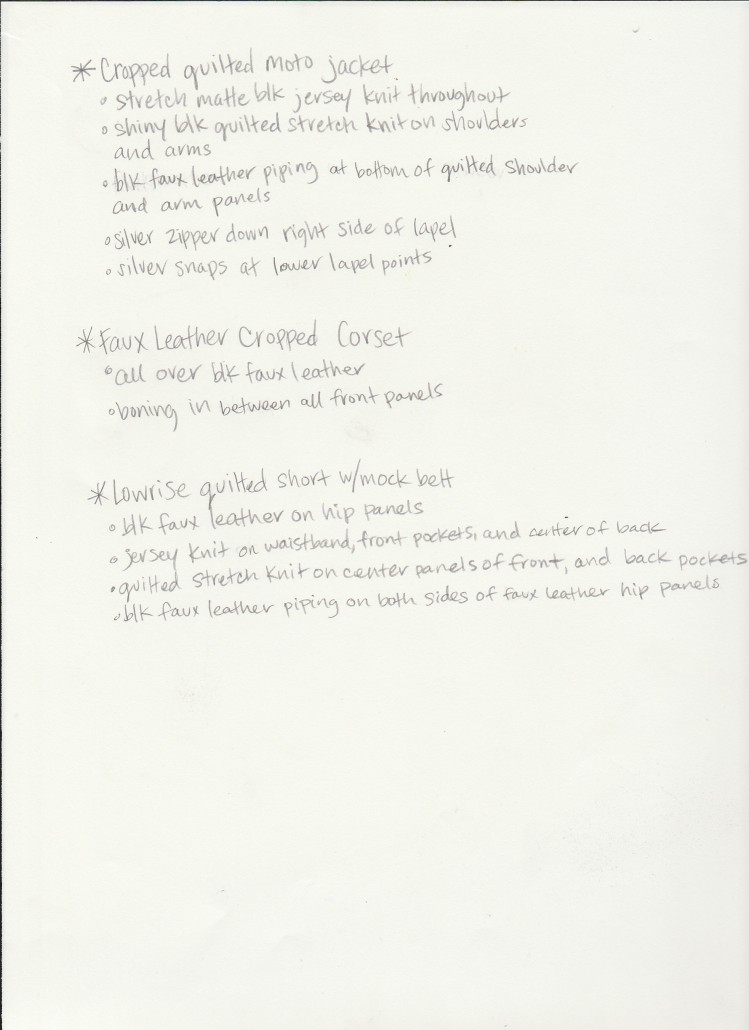 * Cropped quilted moto jacket
• stretch matte blk jersey knit throughout
• shiny blk quilted stretch knit on shoulders
and arms
• blk faux leather piping at bottom of quilted shoulder
and arm panels
• silver zipper down right side of lapel
• silver snaps at lower lapel points
* Faux Leather Cropped Corset
• all over blk faux leather
• boning in between all front panels
* Lowrise quilted short w/mock belt
• blk faux leather on hip panels
• jersey knit on waistband, front pockets, and center of back
• quilted stretch knit on center panels of front, and back pockets
• blk faux leather piping on both sides of faux leather hip panels